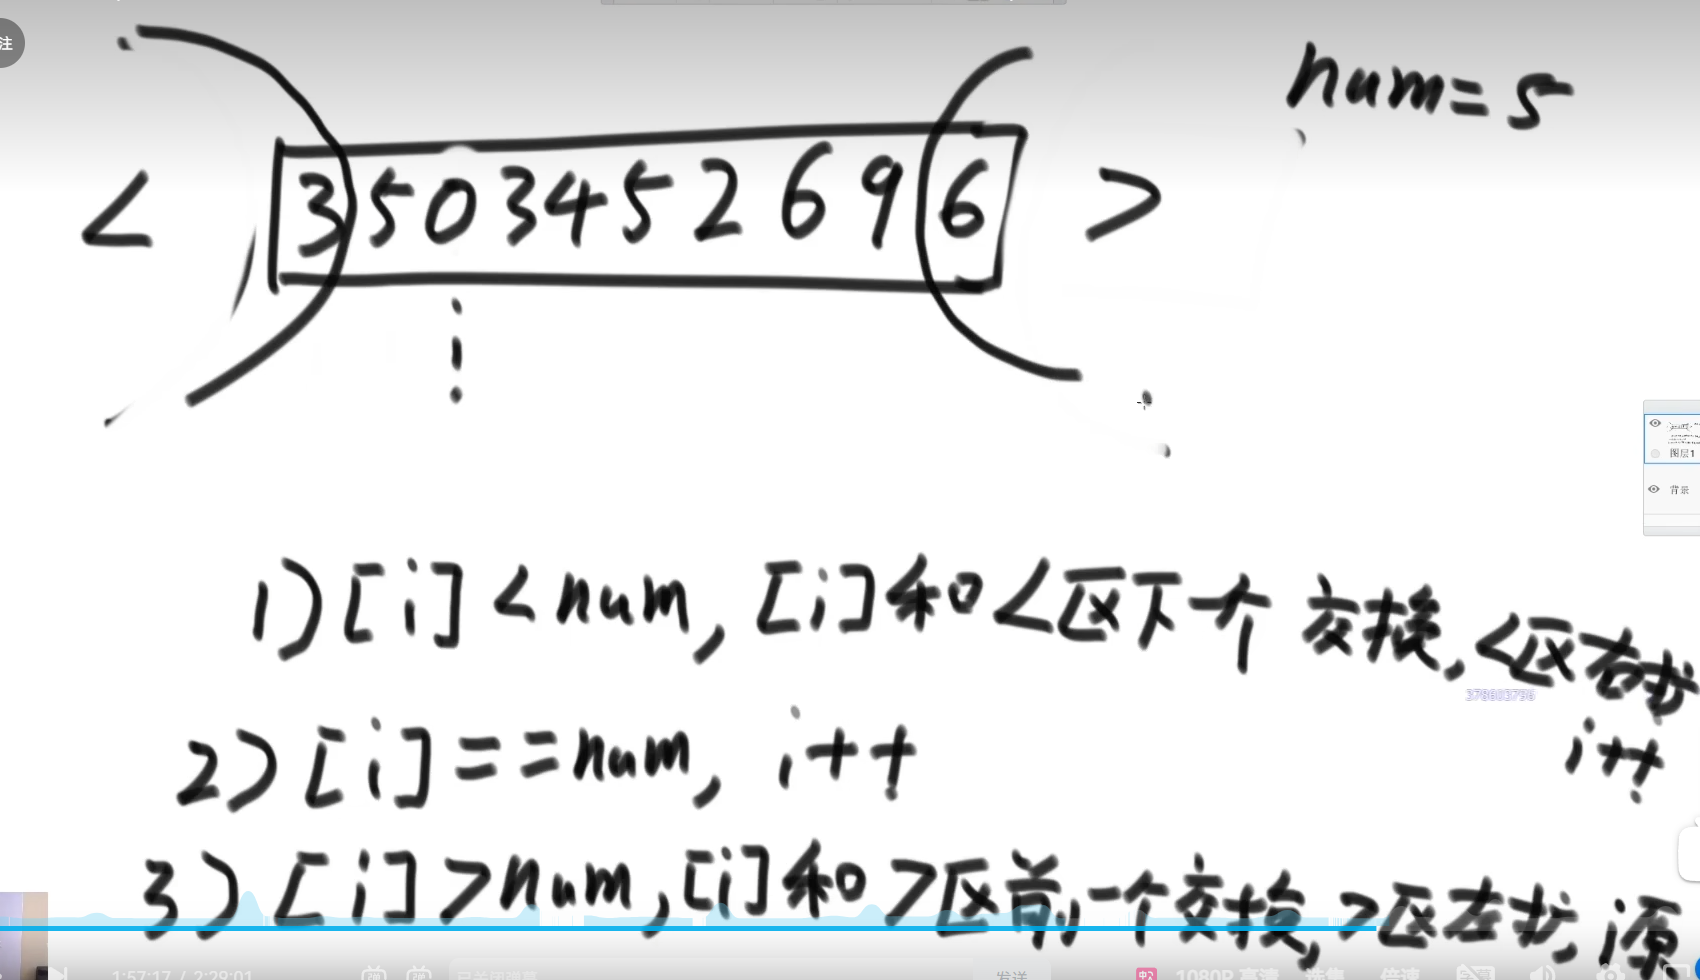 注
num=5
< 3503452696 >
图层1
背景
1) [i] < num, [i]和<区下一个 交换, <区右扩
378603796
i++
2) [i] == num, i++
3) [i] > num, [i]和>区前一个交换, >区左扩, i原
1:57:17 / 2:29:01 已关闭弹幕 发送 1080P 高清 选集 倍速